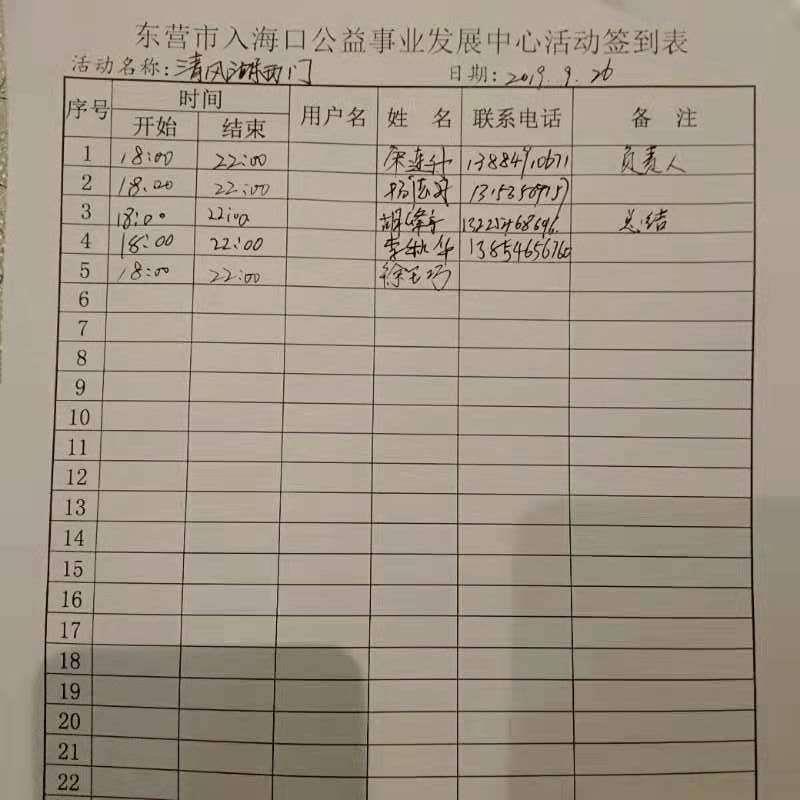 东营市入海口公益事业发展中心活动签到表
活动名称：清风湖西门 日期：2019.9.26
序号 时间 用户名 姓 名 联系电话 备 注
开始 结束
1 18:00 22:00 13884910671 负责人
2 18:00 22:00
3 18:00 22:00 总结
4 18:00 22:00 李秋华 13854656760
5 18:00 22:00
6
7
8
9
10
11
12
13
14
15
16
17
18
19
20
21
22